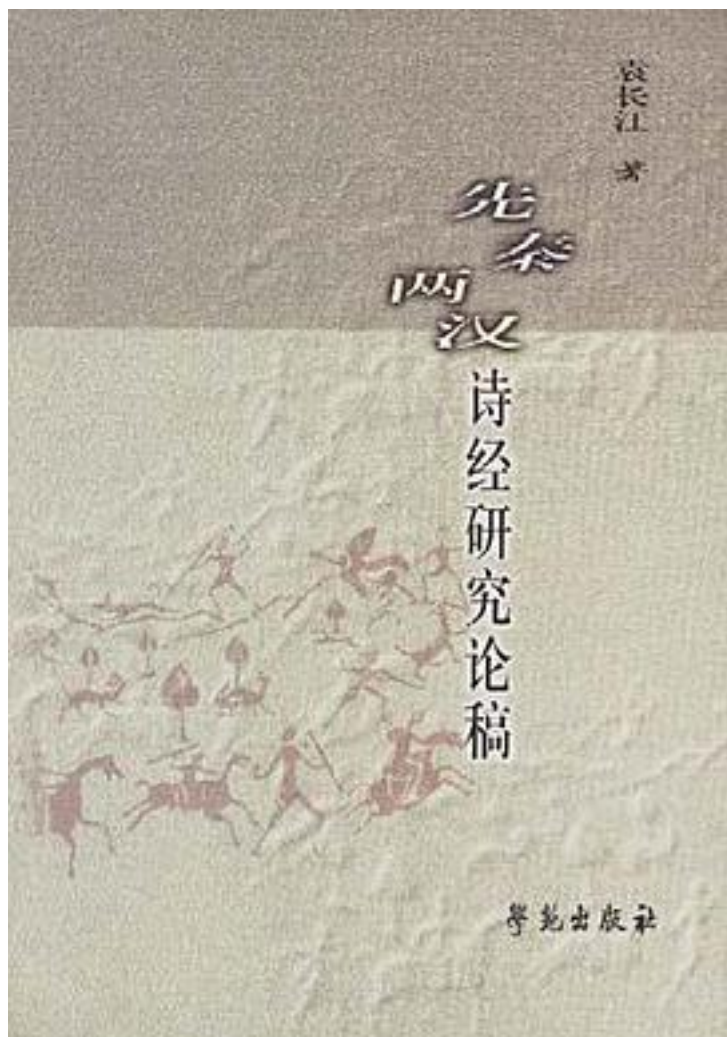 袁长江 著
先秦
两汉
诗经研究论稿
学苑出版社